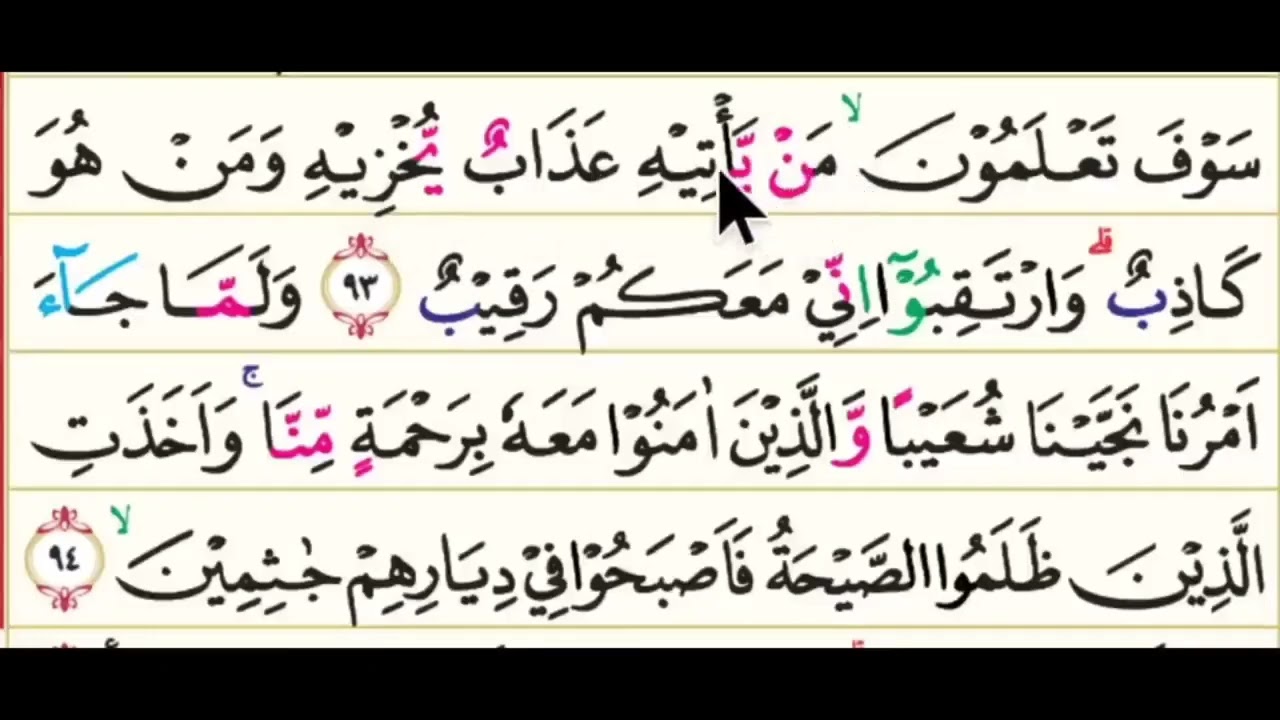 سَوْفَ تَعْلَمُوْنَ ۙ مَنْ يَّأْتِيْهِ عَذَابٌ يُّخْزِيْهِ وَمَنْ هُوَ
كَاذِبٌ ۗ وَارْتَقِبُوْٓا اِنِّيْ مَعَكُمْ رَقِيْبٌ ٩٣ وَلَمَّا جَاۤءَ
اَمْرُنَا نَجَّيْنَا شُعَيْبًا وَّالَّذِيْنَ اٰمَنُوْا مَعَهٗ بِرَحْمَةٍ مِّنَّا ۚ وَاَخَذَتِ
الَّذِيْنَ ظَلَمُوا الصَّيْحَةُ فَاَصْبَحُوْا فِيْ دِيَارِهِمْ جٰثِمِيْنَ ۙ ٩٤